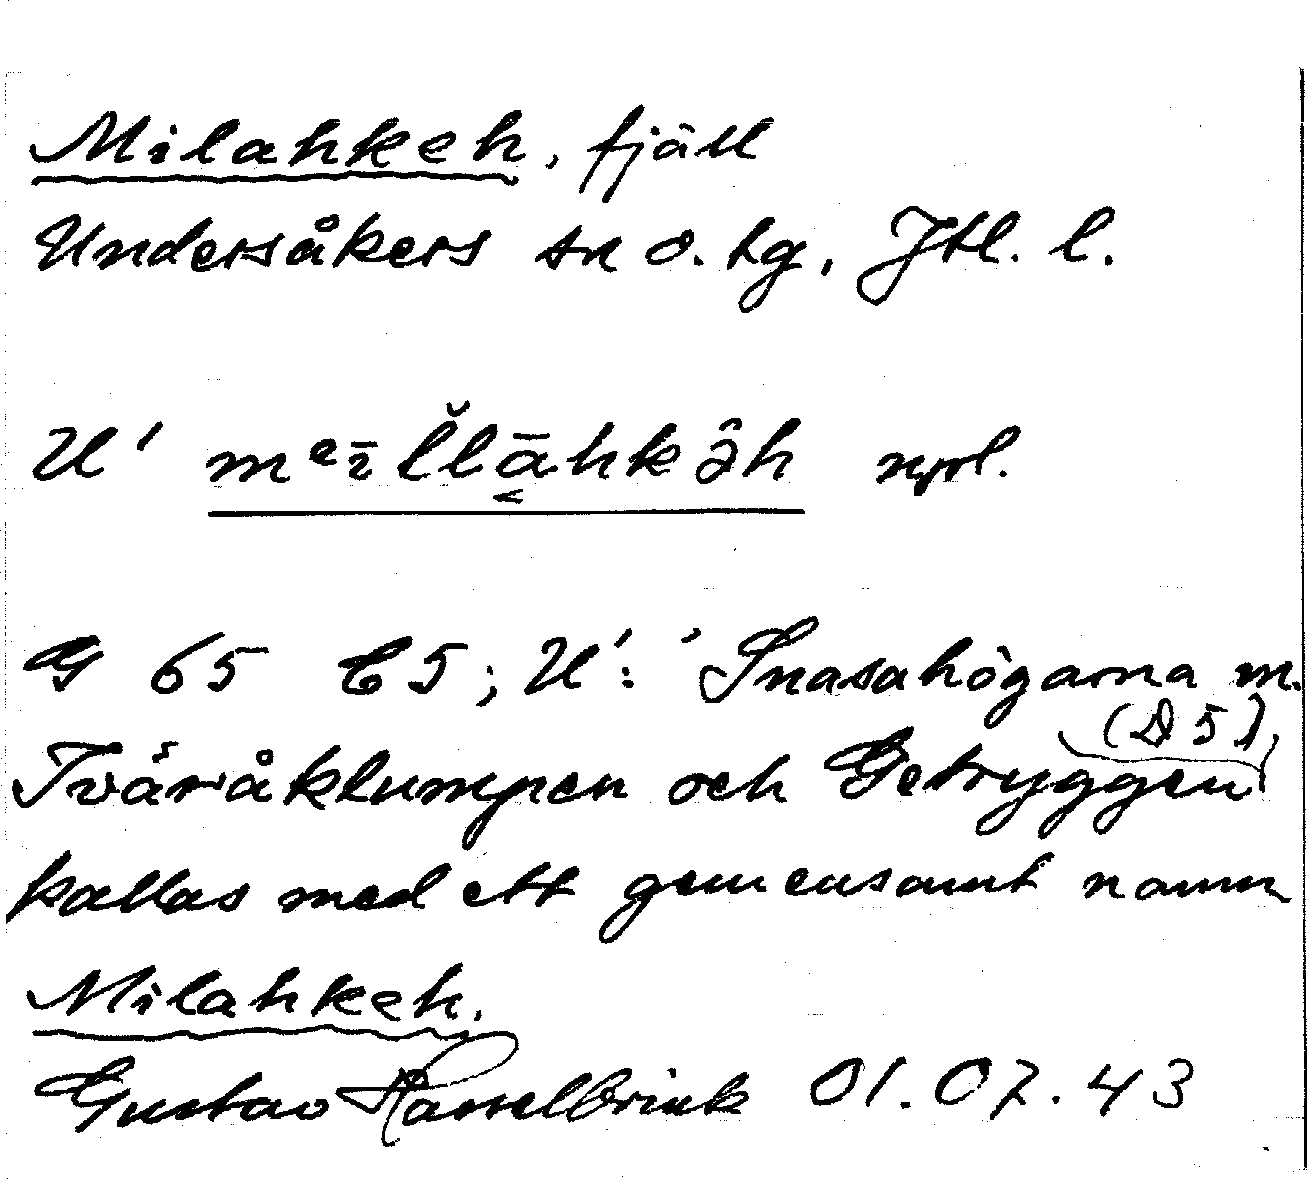 Milahkeh, fjäll
Undersåkers sn o. tg, Jtl. l.
U' mᵉīl̆lā̭hkə̂h npl.
G 65 C5; U': Snasahögarna m.
(D5),
Tväråklumpen och Getryggen
kallas med ett gemensamt namn
Milahkeh.
Gustav Hasselbrink 01.07.43